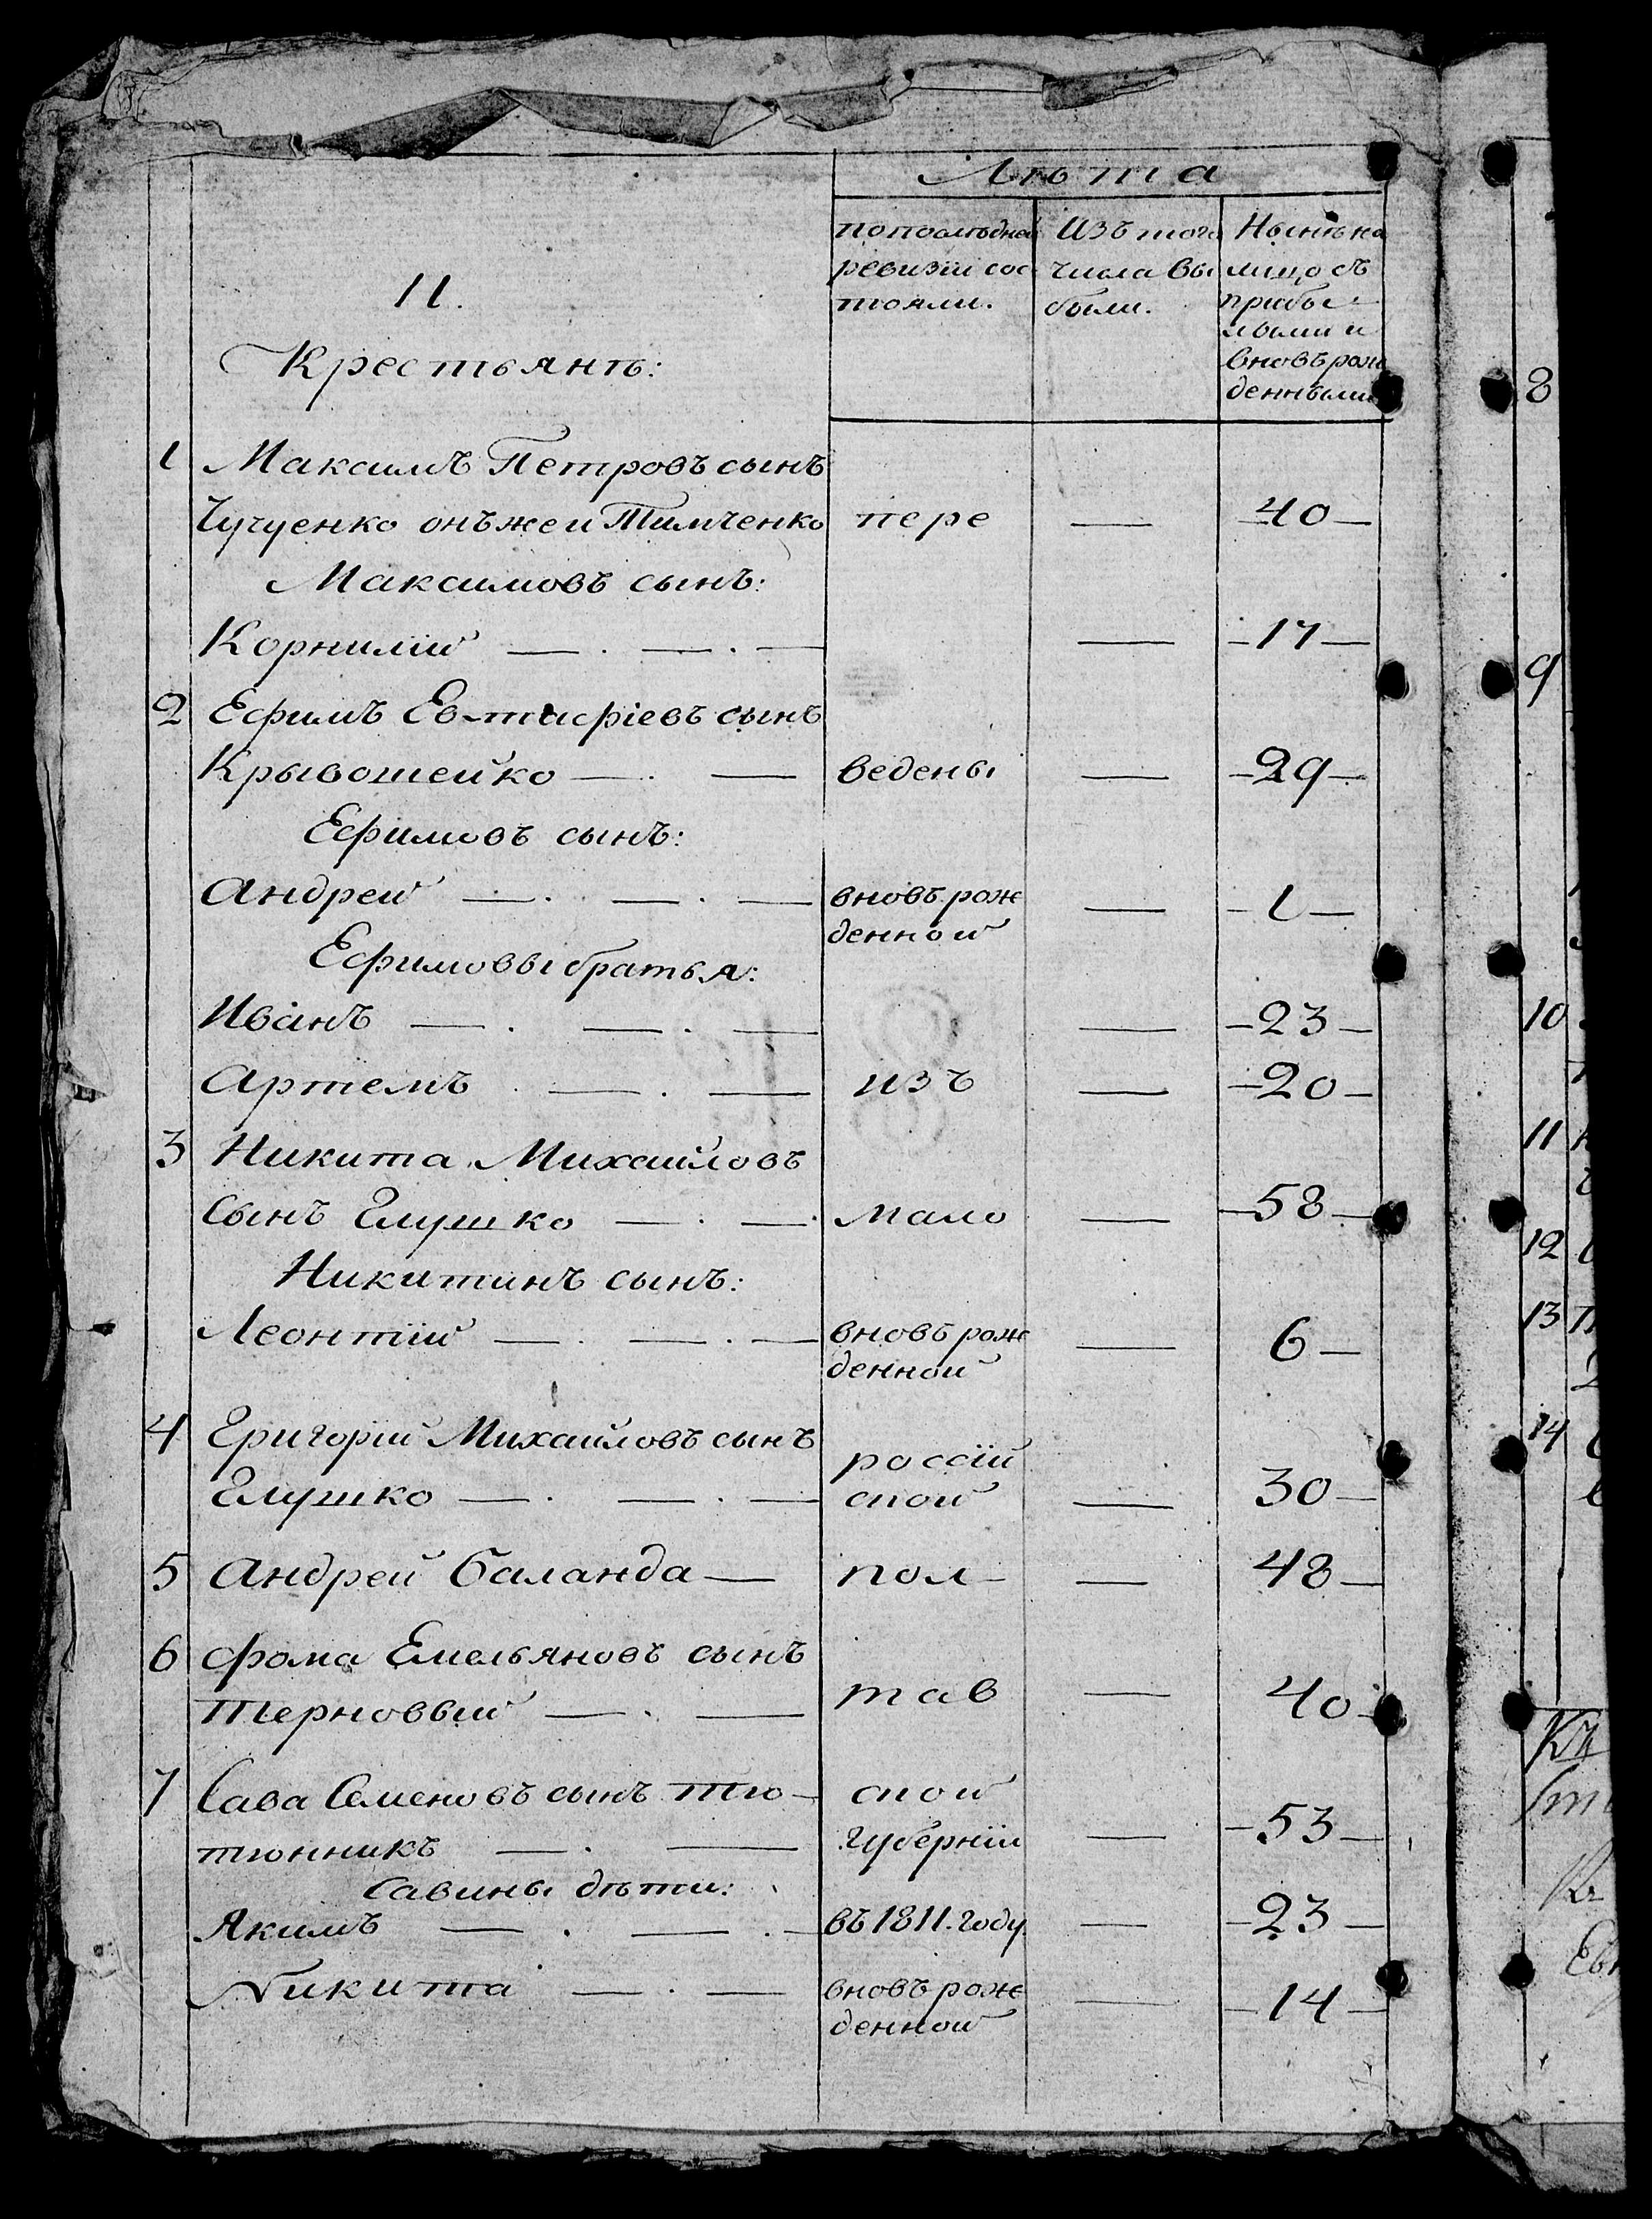 Лѣта
11.
Крестьянѣ:
по последней ревизіи сос
тояли.
Изъ того
числа вы
были.
Нынѣ на
лицо съ
прибы
лыми и
вновь рож
денными
1 Максимъ Петровъ сынъ
Чучуенко онъ же и Тимченко пере — 40 —
Максимовъ сынъ:
Корнилій — . — . — — 17 —
2 Ефимъ Ев-тафіевъ сынъ
Крывошейко — . — ведены — 29 —
Ефимовъ сынъ:
Андрей — . — . — вновь рож — 1 —
денной
Ефимовы братья:
Иванъ — . — . — — 23 —
Артемъ — . — изъ — 20 —
3 Никита Михайловъ
сынъ Глушко — . — мало — 58 —
Никитинъ сынъ:
Леонтій — . — . — вновь рож — 6 —
денной
4 Григорій Михайловъ сынъ россій
Глушко — . — . — ской — 30 —
5 Андрей Баланда — пол — 48 —
6 Фома Емельяновъ сынъ
Терновый — . — тав — 40 —
7 Сава Семеновъ сынъ Тю- ской
тюнникъ — . — губерніи — 53 —
Савины дѣти:
Якимъ — . — . — въ 1811. году — 23 —
Никита — . — вновь рож — 14 —
денной
8
9
10
11
12
13
14